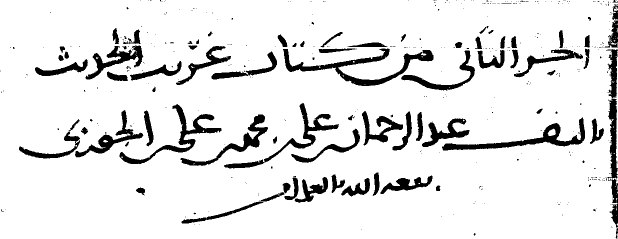 الجز الثاني من كتاب غريب الحديث
تاليف عبد الرحمان بن علي بن محمد بن علي الجوزي
نفعه الله بالعلم